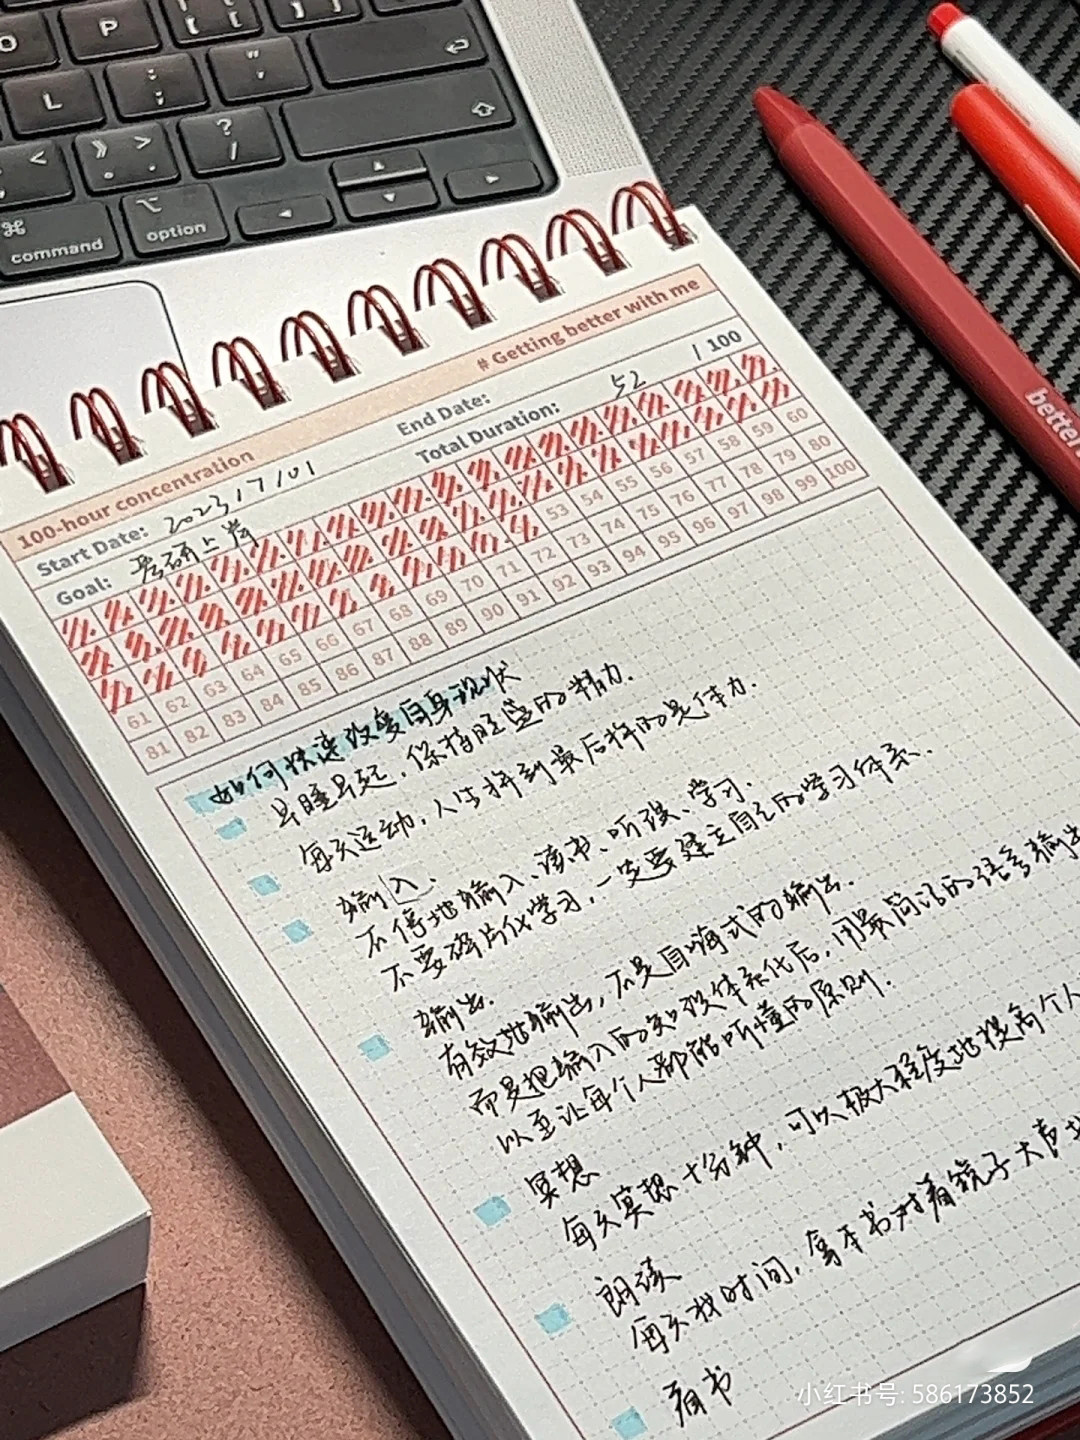 O
P
{ [
} ]
L
: ;
" '
<
》 > .
? /
⌘
command
⌥
option
100-hour concentration
# Getting better with me
Start Date: 2023/7/01
End Date:
Goal: 考研上岸
Total Duration: 52 / 100
53 54 55 56 57 58 59 60
61 62 63 64 65 66 67 68 69 70 71 72 73 74 75 76 77 78 79 80
81 82 83 84 85 86 87 88 89 90 91 92 93 94 95 96 97 98 99 100
如何快速改变自身现状
早睡早起,保持旺盛的精力.
每天运动,人生拼到最后拼的是体力.
输入.
不停地输入、读书、听课、学习.
不要碎片化学习,一定要建立自己的学习体系.
输出.
有效地输出,不是自嗨式的输出.
而是把输入的知识体系化后,用最简洁的语言输出
以至让每个人都能听懂的原则.
冥想
每天冥想十分钟,可以极大程度地提高个人
朗读
每天找时间,拿本书对着镜子大声地
看书
better
小红书号: 586173852